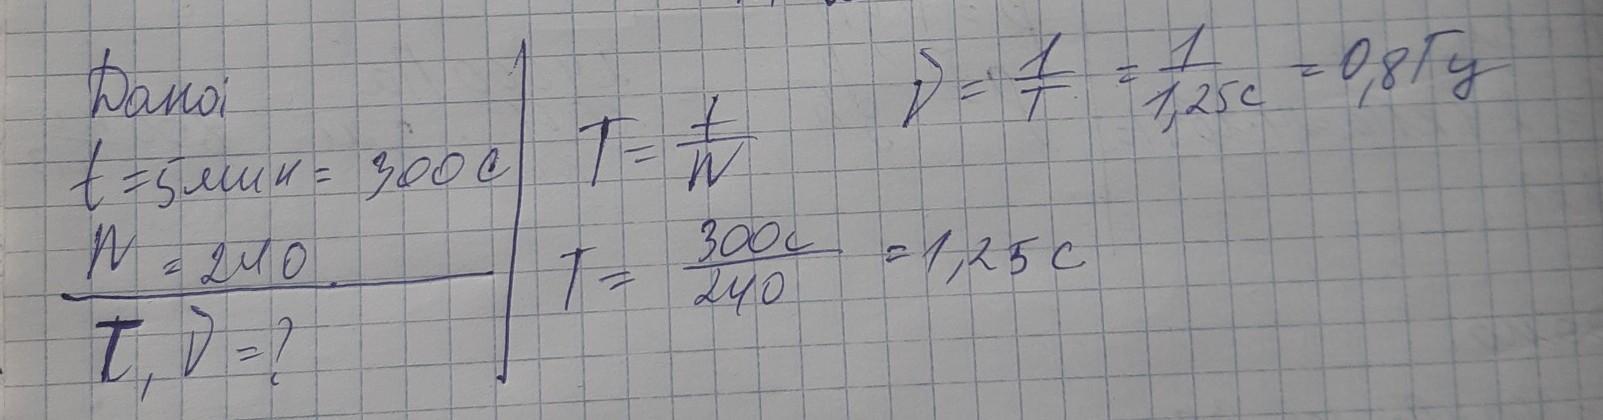 Дано:
t = 5мин = 300 с
N = 240
T, ν = ?
T = t/N
T = 300с/240 = 1,25 с
ν = 1/T = 1/1,25с = 0,8 Гц